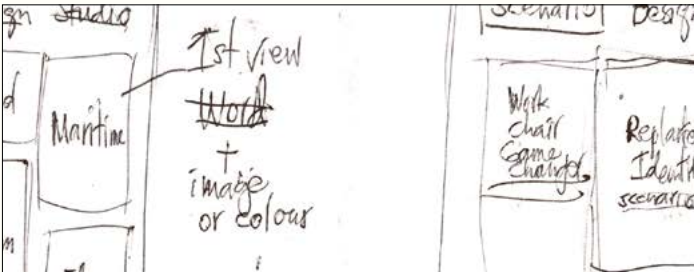 gn Studio
Maritime
1st view
Word
+
image
or colour
Scenario
Design
Work
chair
Game
changer
Identi
scenario